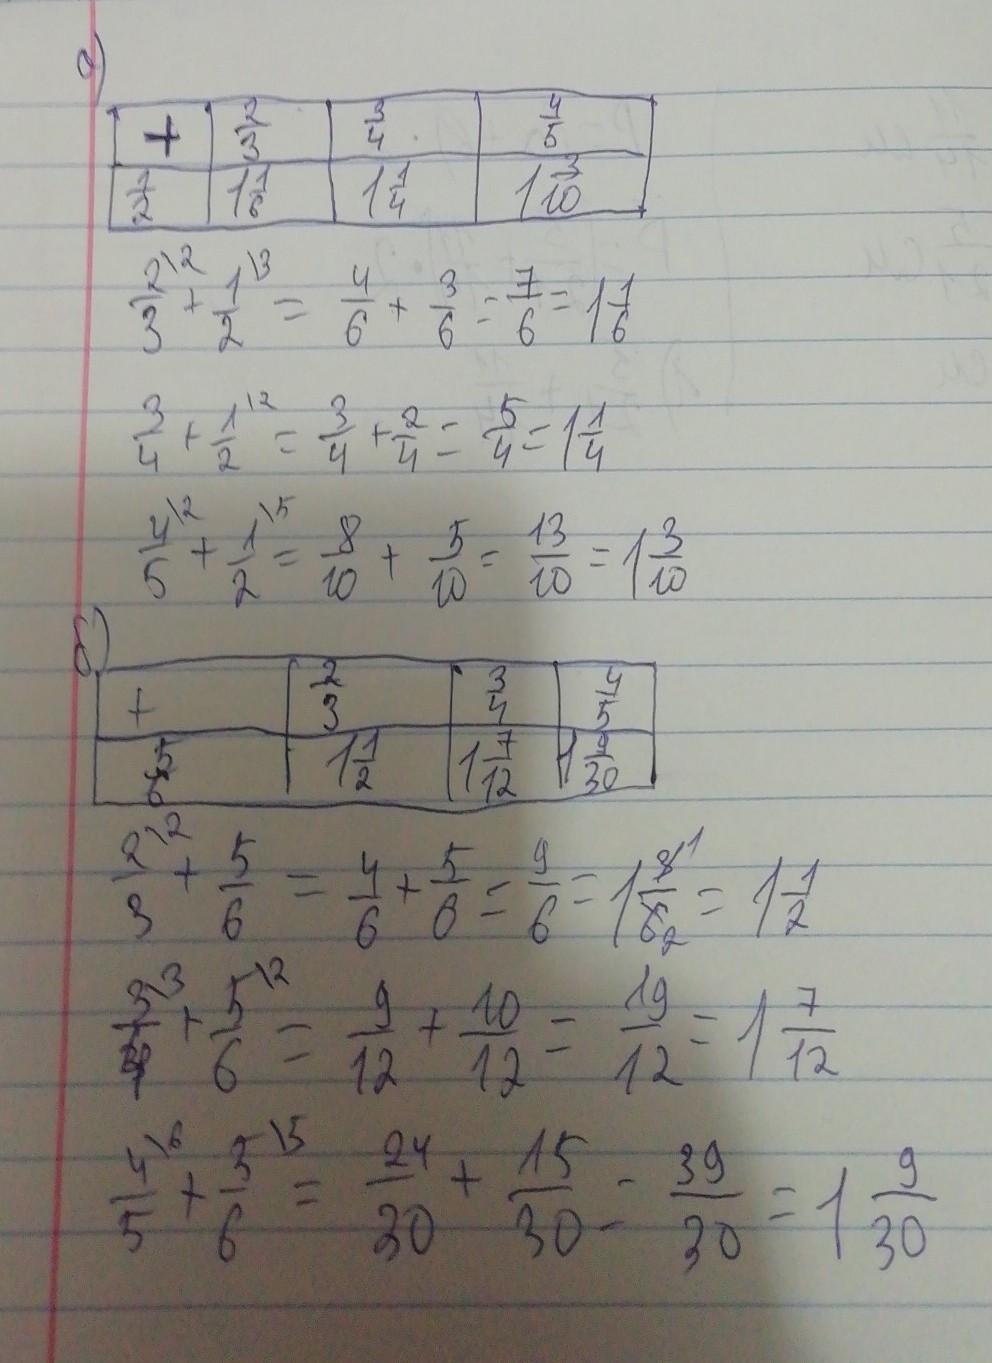 а)
+ 2/3 3/4 4/5
1/2 1 1/6 1 1/4 1 3/10
2/3\2 + 1/2\3 = 4/6 + 3/6 = 7/6 = 1 1/6
3/4 + 1/2\2 = 3/4 + 2/4 = 5/4 = 1 1/4
4/5\2 + 1/2\5 = 8/10 + 5/10 = 13/10 = 1 3/10
б)
+ 2/3 3/4 4/5
5/6 1 1/2 1 7/12 1 9/30
2/3\2 + 5/6 = 4/6 + 5/6 = 9/6 = 1 3/6 = 1 1/2
3/4\3 + 5/6\2 = 9/12 + 10/12 = 19/12 = 1 7/12
4/5\6 + 3/6\5 = 24/30 + 15/30 = 39/30 = 1 9/30